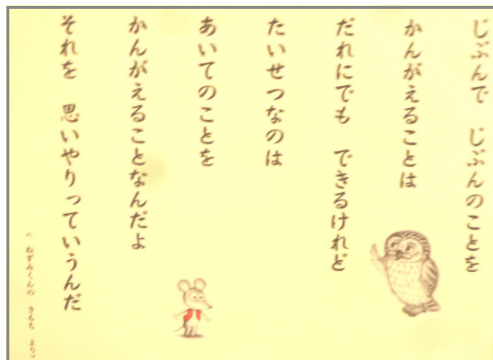 じぶんで じぶんのことを
かんがえることは
だれにでも できるけれど
たいせつなのは
あいてのことを
かんがえることなんだよ
それを 思いやりっていうんだ
ねずみくんの きもち より